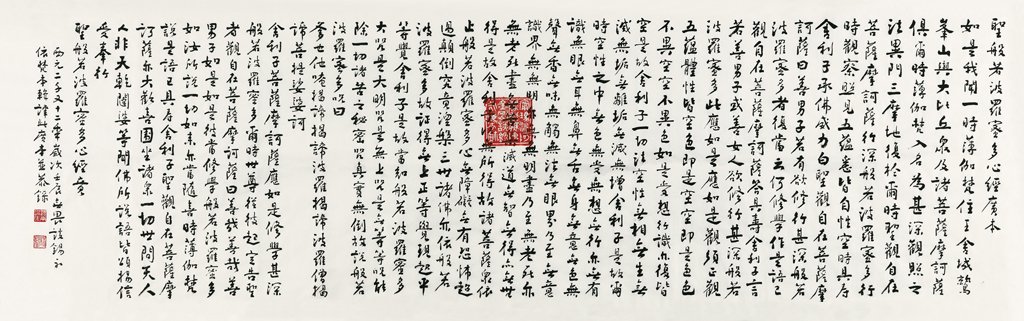 聖般若波羅蜜多心經廣本
如是我聞一時薄伽梵住王舍城鷲
峯山與大比丘衆及諸菩薩摩訶薩
俱爾時薄伽梵入名為甚深觀照之
法異門三摩地復於爾時聖觀自在
菩薩摩訶薩行深般若波羅蜜多行
時觀察照見五蘊悉皆自性空時具壽
舍利子承佛威力白聖觀自在菩薩摩
訶薩曰善男子若有欲修行甚深般若
波羅蜜多者復當云何修學作是語已
觀自在菩薩摩訶薩答具壽舍利子言
若善男子或善女人欲修行甚深般若
波羅蜜多此應如是應如是觀須正觀
五蘊體性皆空色即是空空即是色
不異空空不異色如是受想行識亦復皆
空是故舍利子一切法空性無相無生無
滅無垢無離垢無減無增舍利子是故爾
時空性之中無色無受無想無行亦無有
識無眼無耳無鼻無舌無身無意無色無
聲無香無味無觸無法無眼界乃至無意
識界無無明亦無無明盡乃至無老死亦
無老死盡無苦集滅道無智無得亦無無
得是故舍利子以無所得故諸菩薩衆依
止般若波羅蜜多心無障礙無有恐怖超
過顛倒究竟涅槃三世諸佛亦依般若
波羅蜜多故證得無上正等覺現起平
等覺舍利子是故當知般若波羅蜜多
大咒是大明咒是無上咒是無等等咒能
除一切諸苦之秘密咒真實無倒故說般若
波羅蜜多咒曰
爹也他唵揭諦揭諦波羅揭諦波羅僧揭
諦菩提娑婆訶
舍利子菩薩摩訶薩應如是修學甚深
般若波羅蜜多爾時世尊從彼起定告聖
者觀自在菩薩摩訶薩曰善哉善哉善
男子如是如是彼當修學般若波羅蜜多
如汝所說一切如來亦當隨喜時薄伽梵
說是語已具壽舍利子聖觀自在菩薩摩
訶薩亦大歡喜圍坐諸衆一切世間天人
人非天乾闥婆等聞佛所說語皆頌揚信
受奉行
聖般若波羅蜜多心經竟